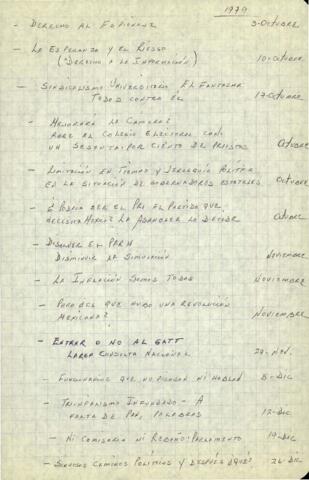 1979
- DERECHO AL 3-OCTUBRE
- LA ESPERANZA Y EL RIESGO
(DERECHO A LA INFORMACIÓN) 10-OCTUBRE
- SINDICALISMO UNIVERSITARIO EL FANTASMA
TODOS CONTRA ÉL 17-OCTUBRE
- MEJORARÁ LA CÁMARA?
AL COLEGIO ELECTORAL CON
UN SESENTAI POR CIENTO DE PRIISTAS OCTUBRE
- LIMITACIÓN EN TIEMPO Y JERARQUÍA POLÍTICA
EN LA SITUACIÓN DE GOBERNADORES ESTATALES OCTUBRE
- ¿PODRÁ SER EL PRI EL PARTIDO QUE
NECESITA LA ASAMBLEA LO DECIDE OCTUBRE
- DISOLVER EL PARM
DISMINUIR LA SIMULACIÓN NOVIEMBRE
- LA INFLACIÓN SOMOS TODOS NOVIEMBRE
- PERO ES QUE HUBO UNA REVOLUCIÓN
MEXICANA? NOVIEMBRE
- ENTRAR O NO AL GATT
LARGA CONSULTA NACIONAL 29-NOV.
- FUNCIONARIOS QUE NO NI HABLAN 5-DIC
- TRIUNFALISMO INFUNDADO - A
FALTA DE PAN, PALABRAS 12-DIC
- NI COMISARIO NI PARLAMENTO 19-DIC
- SINUOSOS CAMINOS POLÍTICOS Y DESPUÉS QUÉ? 26-DIC